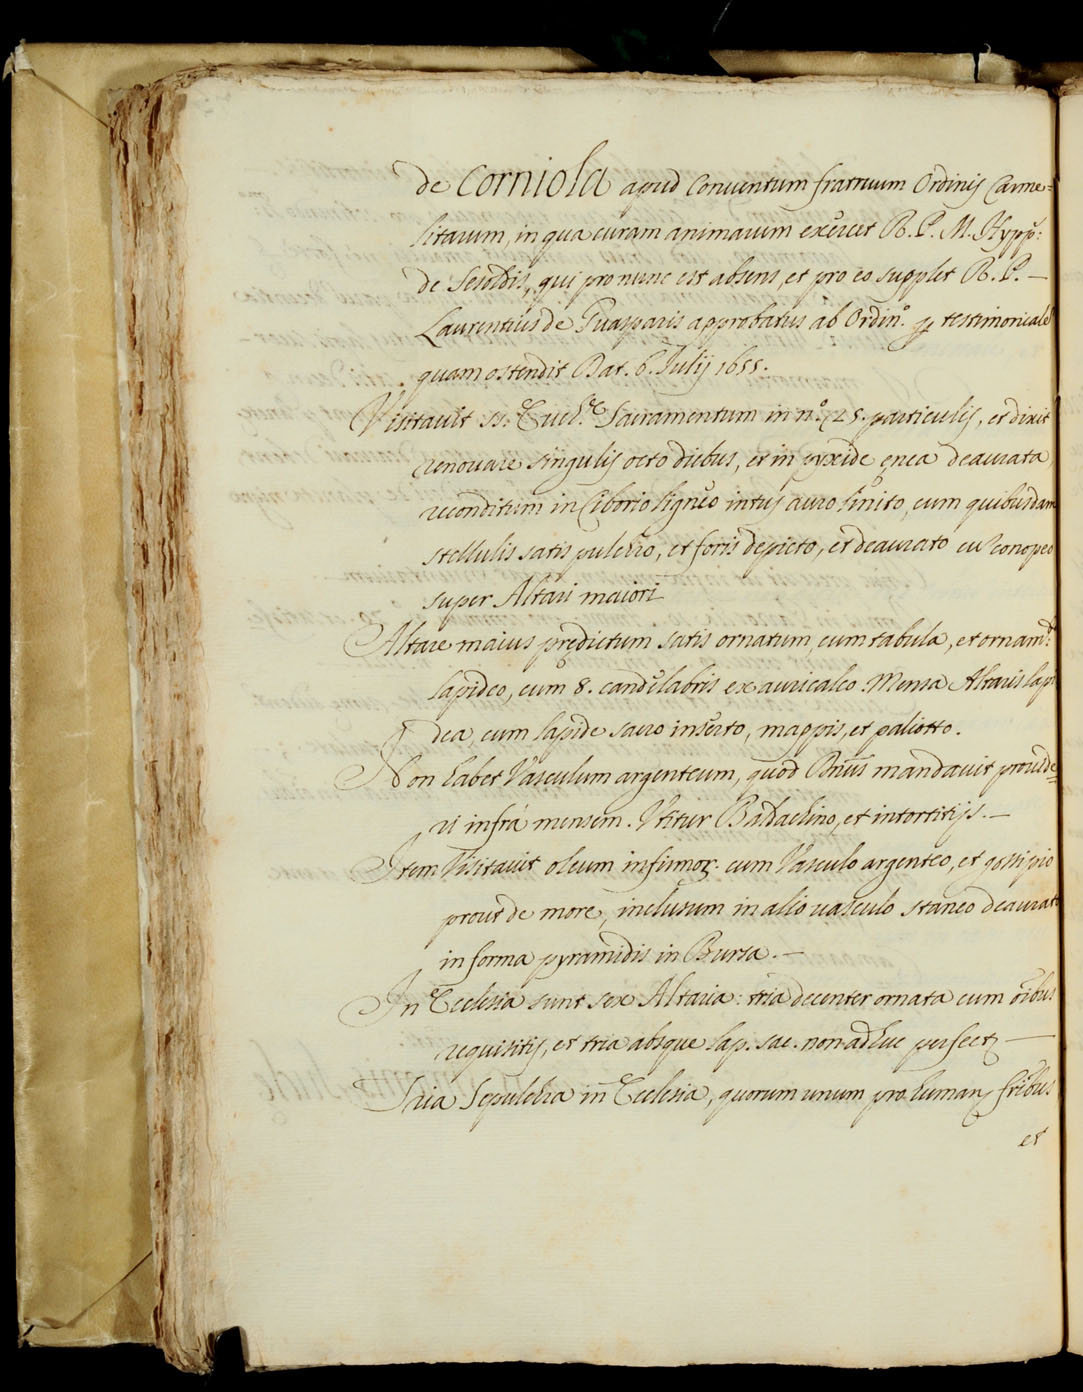 de Corniola apud Conuentum fratruum Ordinis Carme=
litarum, in qua curam animarum exercet R. P. M. Hypp:
de Sesoldis, qui pro nunc est absens, et pro eo supplet R. P. —
Laurentius de Guasparis approbatus ab Ordin.º testimoniale
quam ostendit Dat. 6. Iulij 1655.
Visitauit SS. Euch.e Sacramentum in n.º 25. particulis, et dixit
renouare singulis octo diebus, et in pyxide ęnea deaurata
reconditum in Ciborio ligneo intus auro linito, cum quibusdam
stellulis satis pulchro, et foris depicto, et deaurato cũ conopeo
super Altari maiori
Altare maius prędictum satis ornatum, cum tabula, et ornam.to
lapideo, cum 8. candelabris ex auricalco. Mensa Altaris lapi
dea, cum lapide sacro inserto, mappis, et paliotto.
Non habet Vasculum argenteum, quod Dñus mandauit prouide=
ri infrà mensem. Vtitur Baldachino, et intortitijs. —
Item Visitauit oleum infirmoꝝ. cum Vasculo argenteo, et gossipio
prout de more, inclusum in alio uasculo staneo deaurato
in forma pyramidis in Bursa. —
In Ecclesia sunt sex Altaria: tria decenter ornata cum oĩbus
requisitis, et tria absque lap. sac. non adhuc perfectę —
Tria Sepulchra in Ecclesia, quorum unum pro humanę frĩbus
et